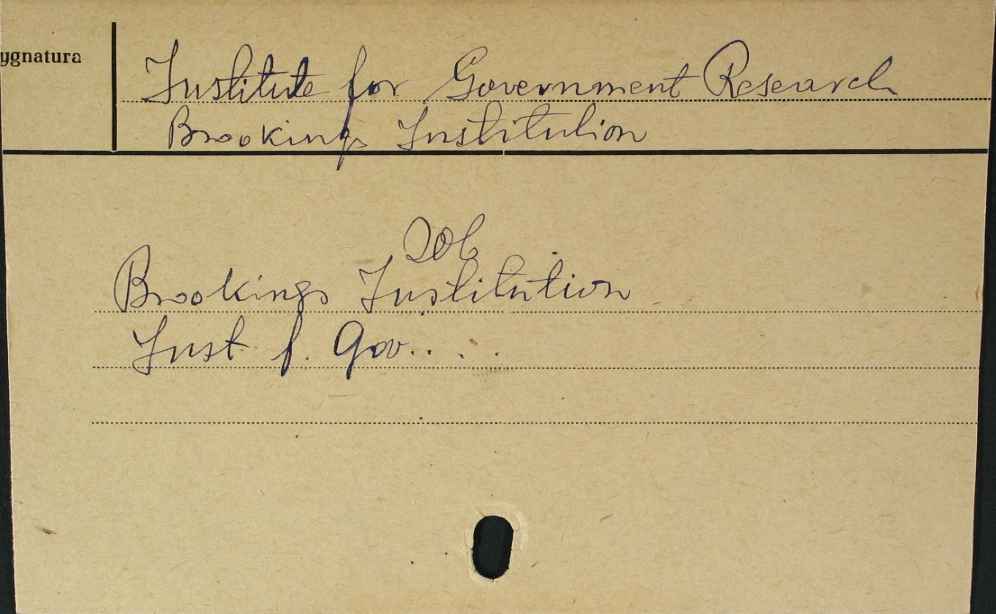 ygnatura
Institute for Government Research
Brookings Institution
Zob
Brookings Institution
Inst. f. Gov. . . .